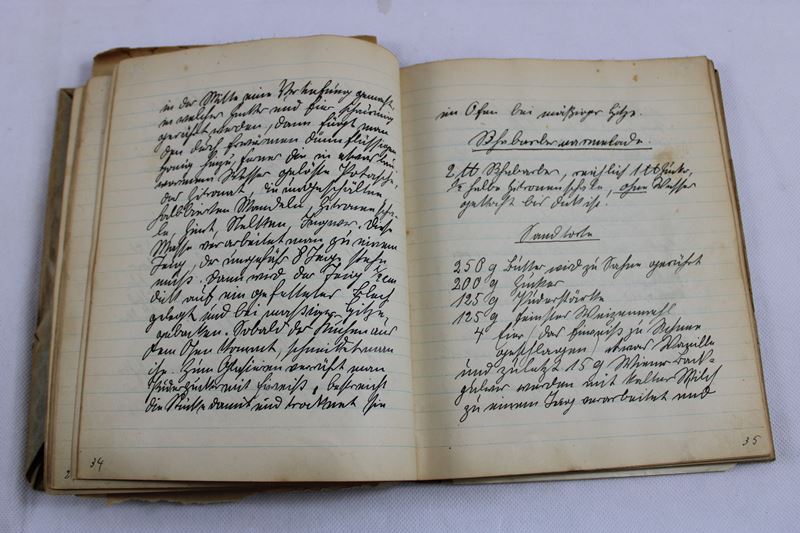 in der Mitte eine Vertiefung gemacht,
in welcher Zucker und Eier schaumig
gerührt werden, dann fügt man
den durch Erwärmen dünnflüssigen
Honig hinzu, ferner die in etwas lau
warmem Wasser gelöste Pottasche,
das Zitronat, die ungeschälten
halbierten Mandeln, Zitronenscha-
le, Zimt, Nelken, Ingwer. Diese
Masse verarbeitet man zu einem
Teig, der ungefähr 8 Tage stehn
muß. Dann wird der Teig ½ cm
dick auf ein gefettetes Blech
gelegt und bei mäßiger Hitze
gebacken. Sobald der Kuchen aus
dem Ofen kommt, schneidet man
ihn. Zum Glasieren verrührt man
Puderzucker mit Eiweiß, bestreicht
die Stücke damit und trocknet sie
34
im Ofen bei mäßiger Hitze.
Rhabarbermarmelade.
2 ℔ Rhabarber, reichlich 1 ℔ Zucker,
halbe Zitronenschale, ohne Wasser
gekocht bis dick ist.
Sandtorte
250 g Butter wird zu Sahne gerührt
200 g Zucker
125 g Puderstärke
125 g feinstes Weizenmehl
4 Eier, das Eiweiß zu Schnee
geschlagen, etwas Vanille
und zuletzt 15 g Wiener Back-
pulver werden mit kalter Milch
zu einem Teig verarbeitet und
35
2